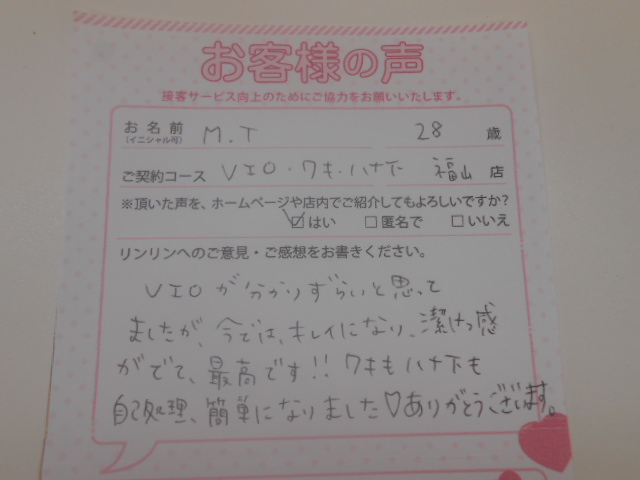 お客様の声
接客サービス向上のためにご協力をお願いいたします。
お名前 (イニシャル可) M.T 28 歳
ご契約コース VIO・ワキ・ハナ下 福山 店
※頂いた声を、ホームページや店内でご紹介してもよろしいですか?
☑はい □匿名で □いいえ
リンリンへのご意見・ご感想をお書きください。
VIOが分かりずらいと思って
ましたが、今では、キレイになり、潔けつ感
がでて、最高です!!ワキもハナ下も
自己処理、簡単になりました♡ありがとうございます。